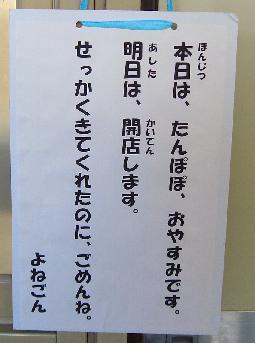 本日は、たんぽぽ、おやすみです。
明日は、開店します。
せっかくきてくれたのに、ごめんね。
よねごん
ほんじつ
あした
かいてん